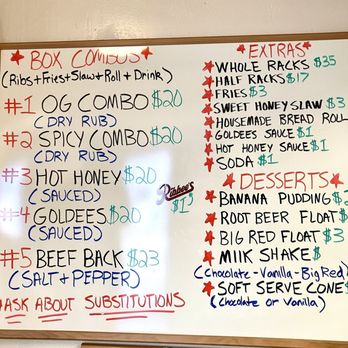 BOX COMBOS
(Ribs+Fries+Slaw+Roll+Drink)
#1 OG COMBO $20
(DRY RUB)
#2 SPICY COMBO $20
(DRY RUB)
#3 HOT HONEY $20
(SAUCED)
#4 GOLDEES $20
(SAUCED)
#5 BEEF BACK $23
(SALT + PEPPER)
*ASK ABOUT SUBSTITUTIONS
$1
EXTRAS
WHOLE RACKS $35
HALF RACKS $17
FRIES $3
SWEET HONEY SLAW $3
HOUSEMADE BREAD ROLL
GOLDEES SAUCE $1
HOT HONEY SAUCE $1
SODA $1
DESSERTS
BANANA PUDDING $2
ROOT BEER FLOAT $
BIG RED FLOAT $3
MILK SHAKE $
(Chocolate - Vanilla - Big Red)
SOFT SERVE CONE $
(chocolate or Vanilla)